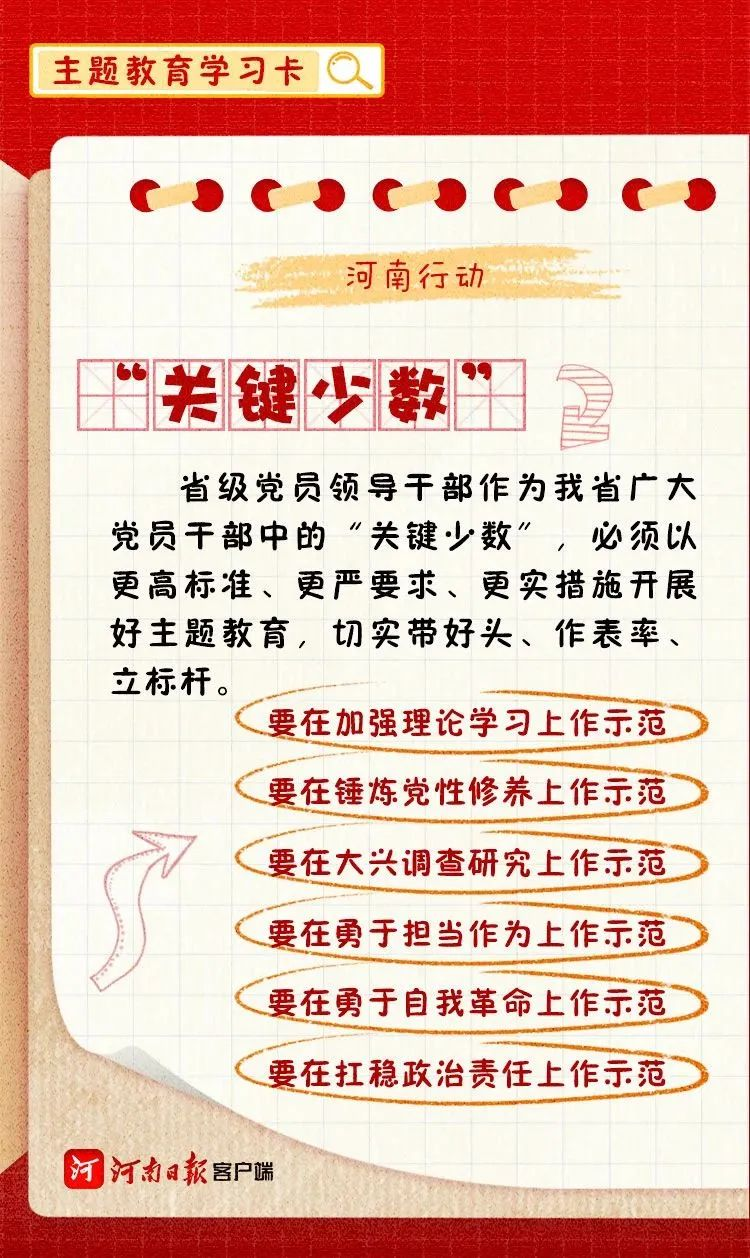 主题教育学习卡
河南行动
“关键少数”
2
省级党员领导干部作为我省广大
党员干部中的“关键少数”，必须以
更高标准、更严要求、更实措施开展
好主题教育，切实带好头、作表率、
立标杆。
要在加强理论学习上作示范
要在锤炼党性修养上作示范
要在大兴调查研究上作示范
要在勇于担当作为上作示范
要在勇于自我革命上作示范
要在扛稳政治责任上作示范
河 河南日报客户端